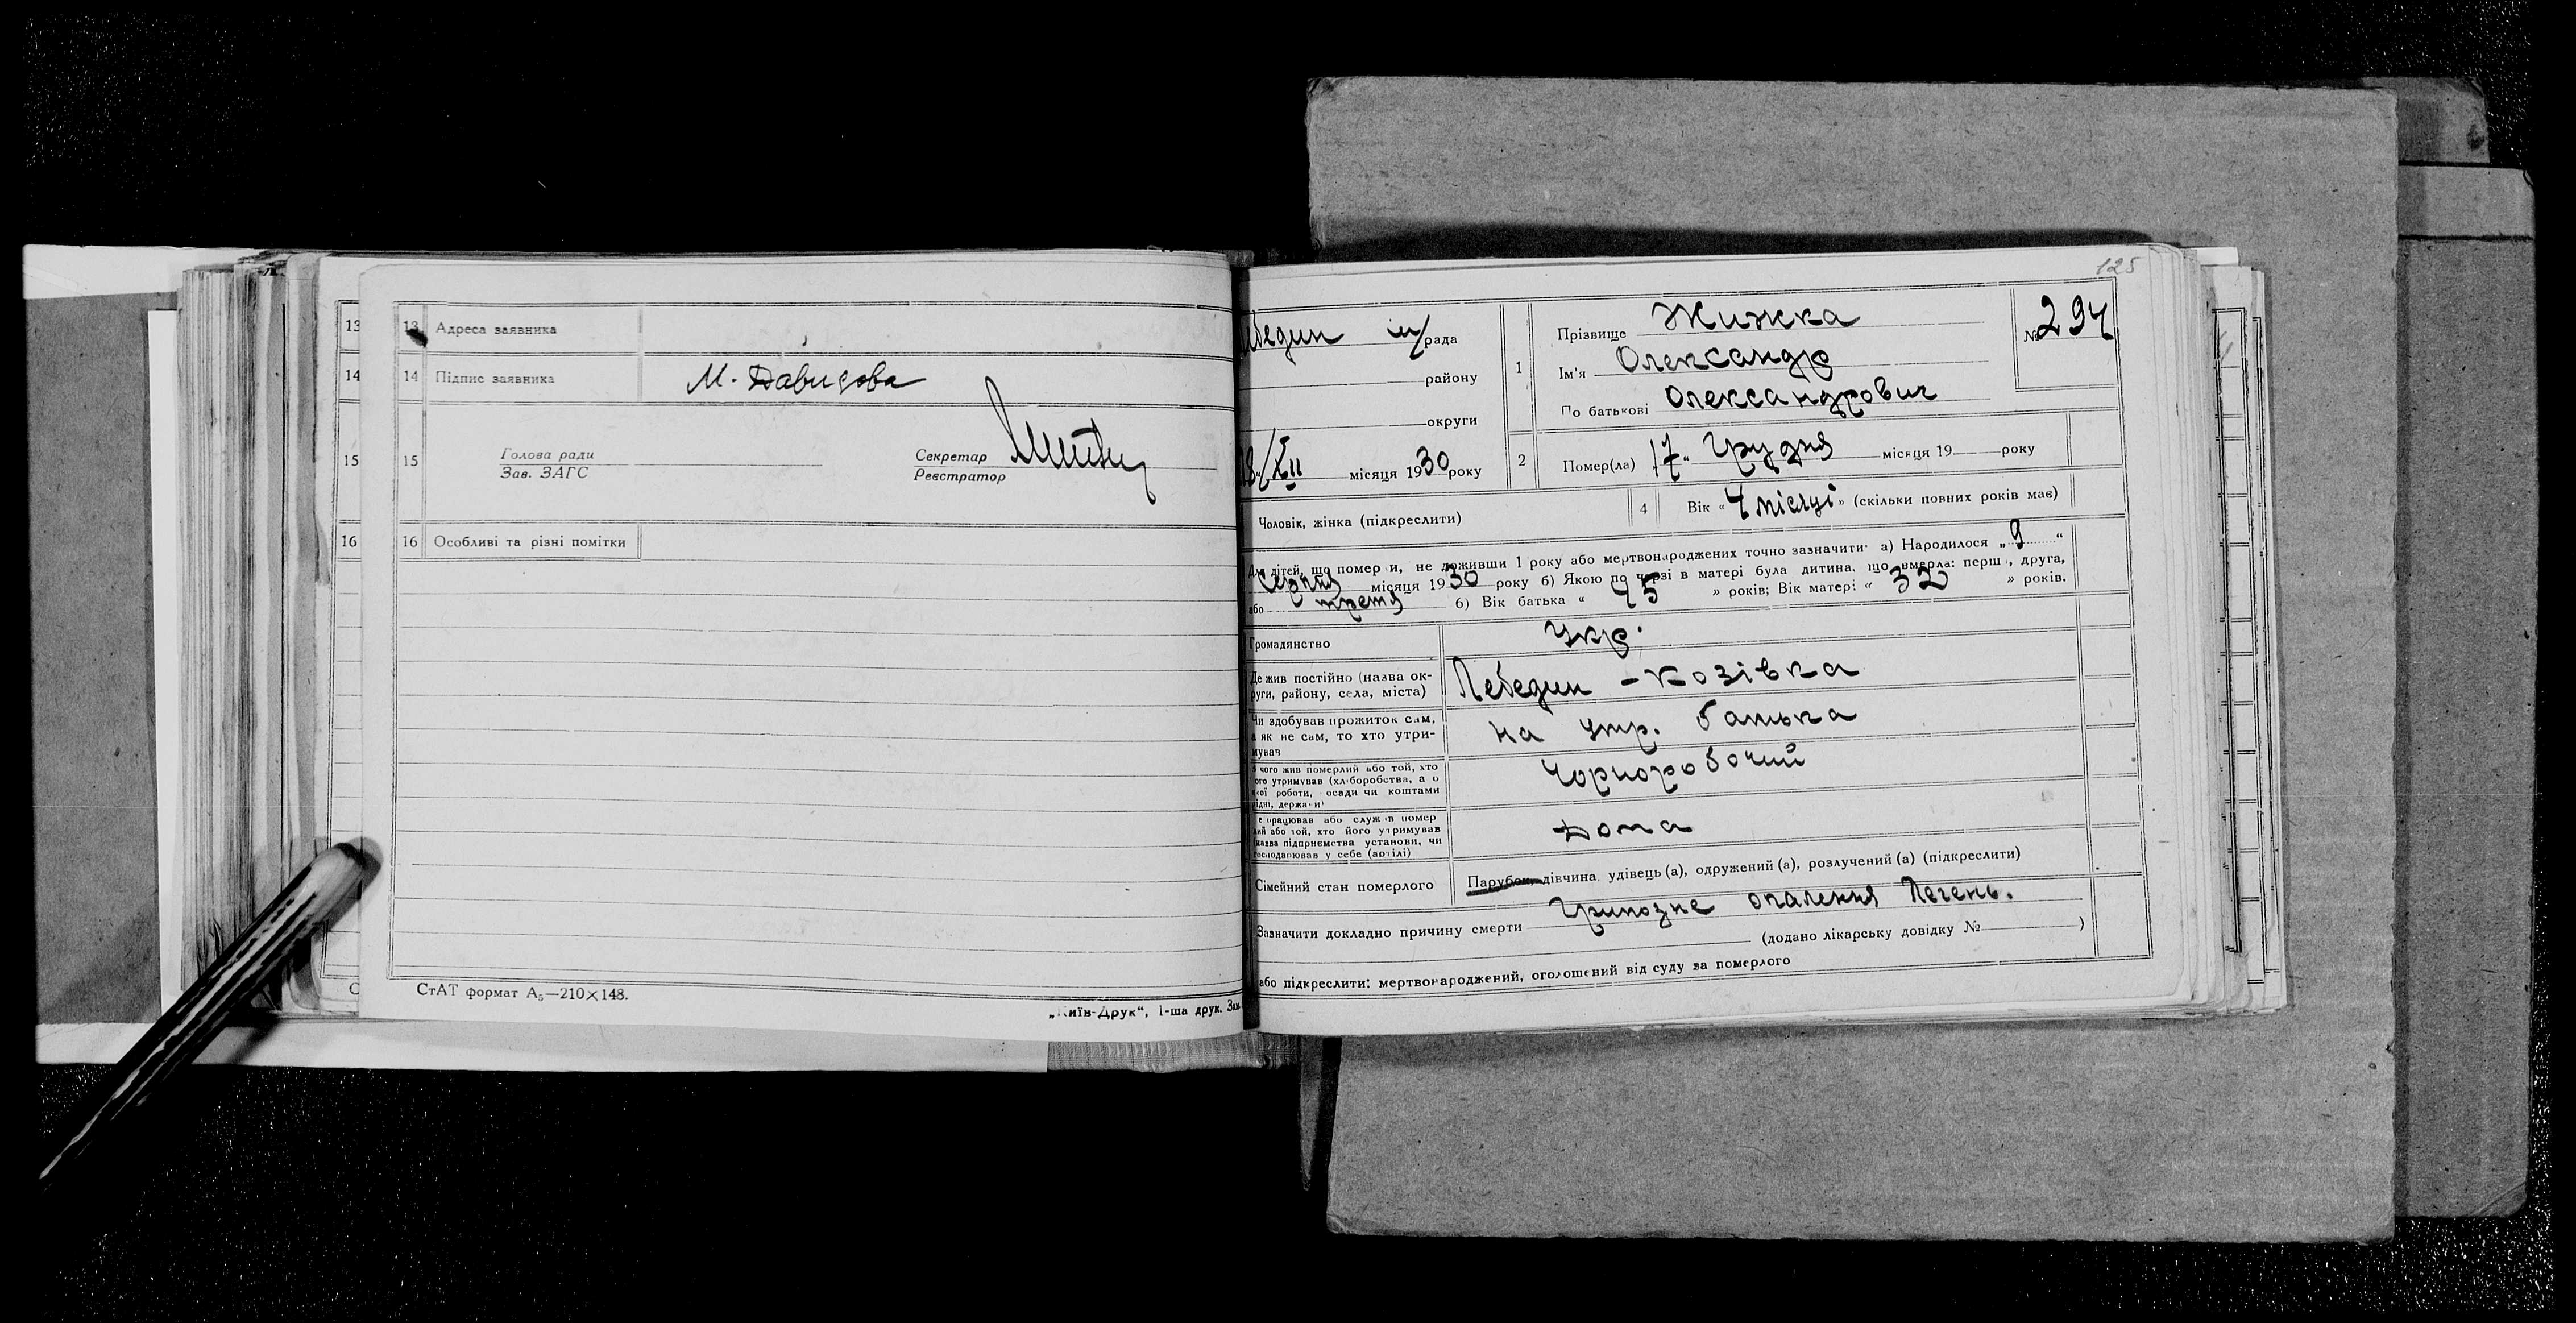 13
14
15
16
13 Адреса заявника
14 Підпис заявника М. Давидова
15 Голова ради Секретар
Зав. ЗАГС Реєстратор
16 Особливі та різні помітки
СтАТ формат А₅—210×148.
„Київ-Друк“, 1-ша друк. Зам.
125
Лебедин м/рада
району
округи
18/XII місяця 1930 року
1 Прізвище Жижка
Ім'я Олександр
По батькові Олександрович
№ 294
2 Помер(ла) 17 „ Грудня місяця 19 року
Чоловік, жінка (підкреслити)
4 Вік « 4 місяці » (скільки повних років має)
Для дітей, що померли, не доживши 1 року або мертвонароджених точно зазначити: а) Народилося „ 9 “
Серпня місяця 1930 року б) Якою по черзі в матері була дитина, що вмерла: перша, друга,
або третя б) Вік батька « 45 » років; Вік матері « 32 » років.
Громадянство Укр.
Де жив постійно (назва ок-
руги, району, села, міста) Лебедин - Козівка
Чи здобував прожиток сам,
а як не сам, то хто утри-
мував на утр. батька
З чого жив померлий або той, хто
його утримував (хліборобства, а о
якої роботи, посади чи коштами
рідні, держави) Чорноробочий
Де працював або служив помер
лий або той, хто його утримував
(назва підприємства установи, чи
господарював у себе (артілі) Дома
Сімейний стан померлого Парубок, дівчина, удівець (а), одружений (а), розлучений (а) (підкреслити)
Зазначити докладно причину смерти Грипозне опалення Легень.
(додано лікарську довідку № )
або підкреслити: мертвонароджений, оголошений від суду за померлого